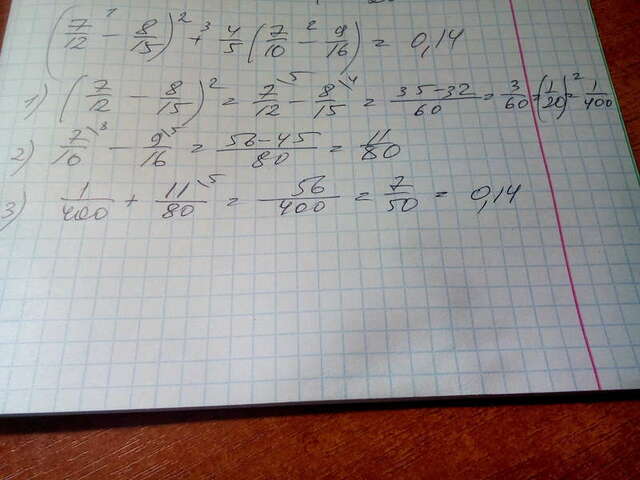 (7/12 -¹ 8/15)² +³ 4/5 (7/10 -² 9/16) = 0,14
1) (7/12 - 8/15)² = 7/12\5 - 8/15\4 = 35-32/60 = 3/60 = (1/20)² = 1/400
2) 7/10\8 - 9/16\5 = 56-45/80 = 11/80
3) 1/400 + 11/80\5 = 56/400 = 7/50 = 0,14